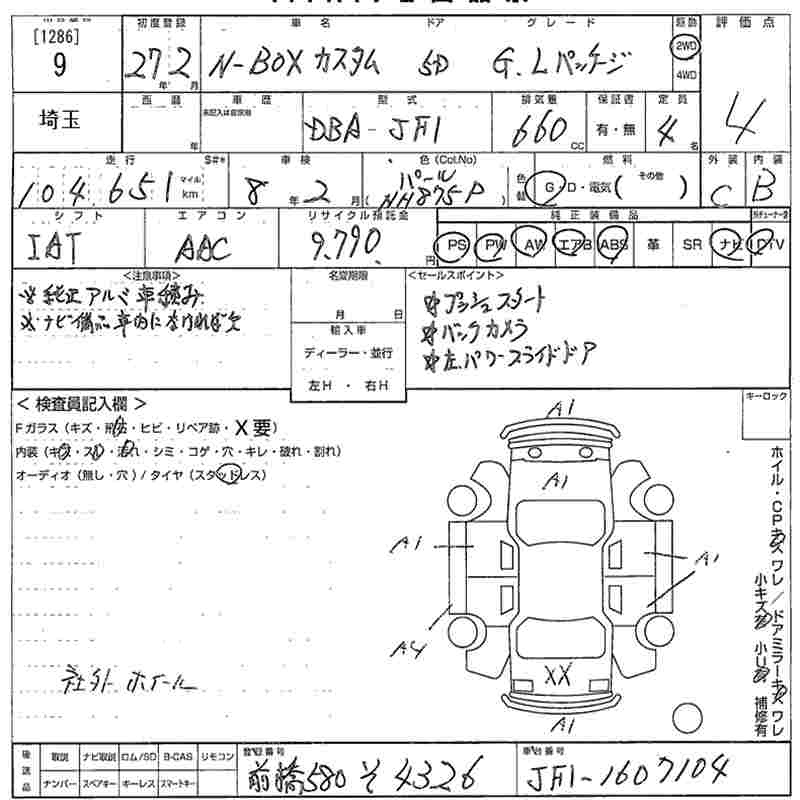 [1286]
9
初度登録 車名 ドア グレード 駆動 評価点
27 年 2 月 N-BOX カスタム 5D G.Lパッケージ 2WD 4WD 4
埼玉
西暦 年 車歴 未記入は自家用 型式 排気量 保証書 定員
DBA-JF1 660 CC 有・無 4 名
走行 S#* 車検 色(Col.No) 燃料 外装 内装
104,651 マイル km 8 年 2 月 ( パール NH875P ) 色替 G・D・電気( その他 ) C B
シフト エアコン リサイクル預託金 純正装備品
IAT AAC 9,790 円 PS PW AW エアB ABS 革 SR ナビ DTV
<注意事項> 名変期限 <セールスポイント>
※純正アルミ車積み
※ナビ備品車内になければ欠
月 日
輸入車
ディーラー・並行
左H ・ 右H
☆プッシュスタート
☆バックカメラ
☆左パワースライドドア
<検査員記入欄> キーロック
Fガラス(キズ・飛石・ヒビ・リペア跡・X要)
内装(キズ・スレ・汚れ・シミ・コゲ・穴・キレ・破れ・割れ)
オーディオ(無し・穴)/タイヤ(スタッドレス)
社外 ホイール
A1
A1
A1
A1
A4
XX
A1
ホイル・CPキズ ワレ/ドアミラーキズ ワレ
小キズ 小U 補修有
後送品 取説 ナビ取説 ロム/SD B-CAS リモコン
ナンバー スペアキー キーレス スマートキー
登録番号 車台番号
前橋580 そ 4326 JF1-1607104